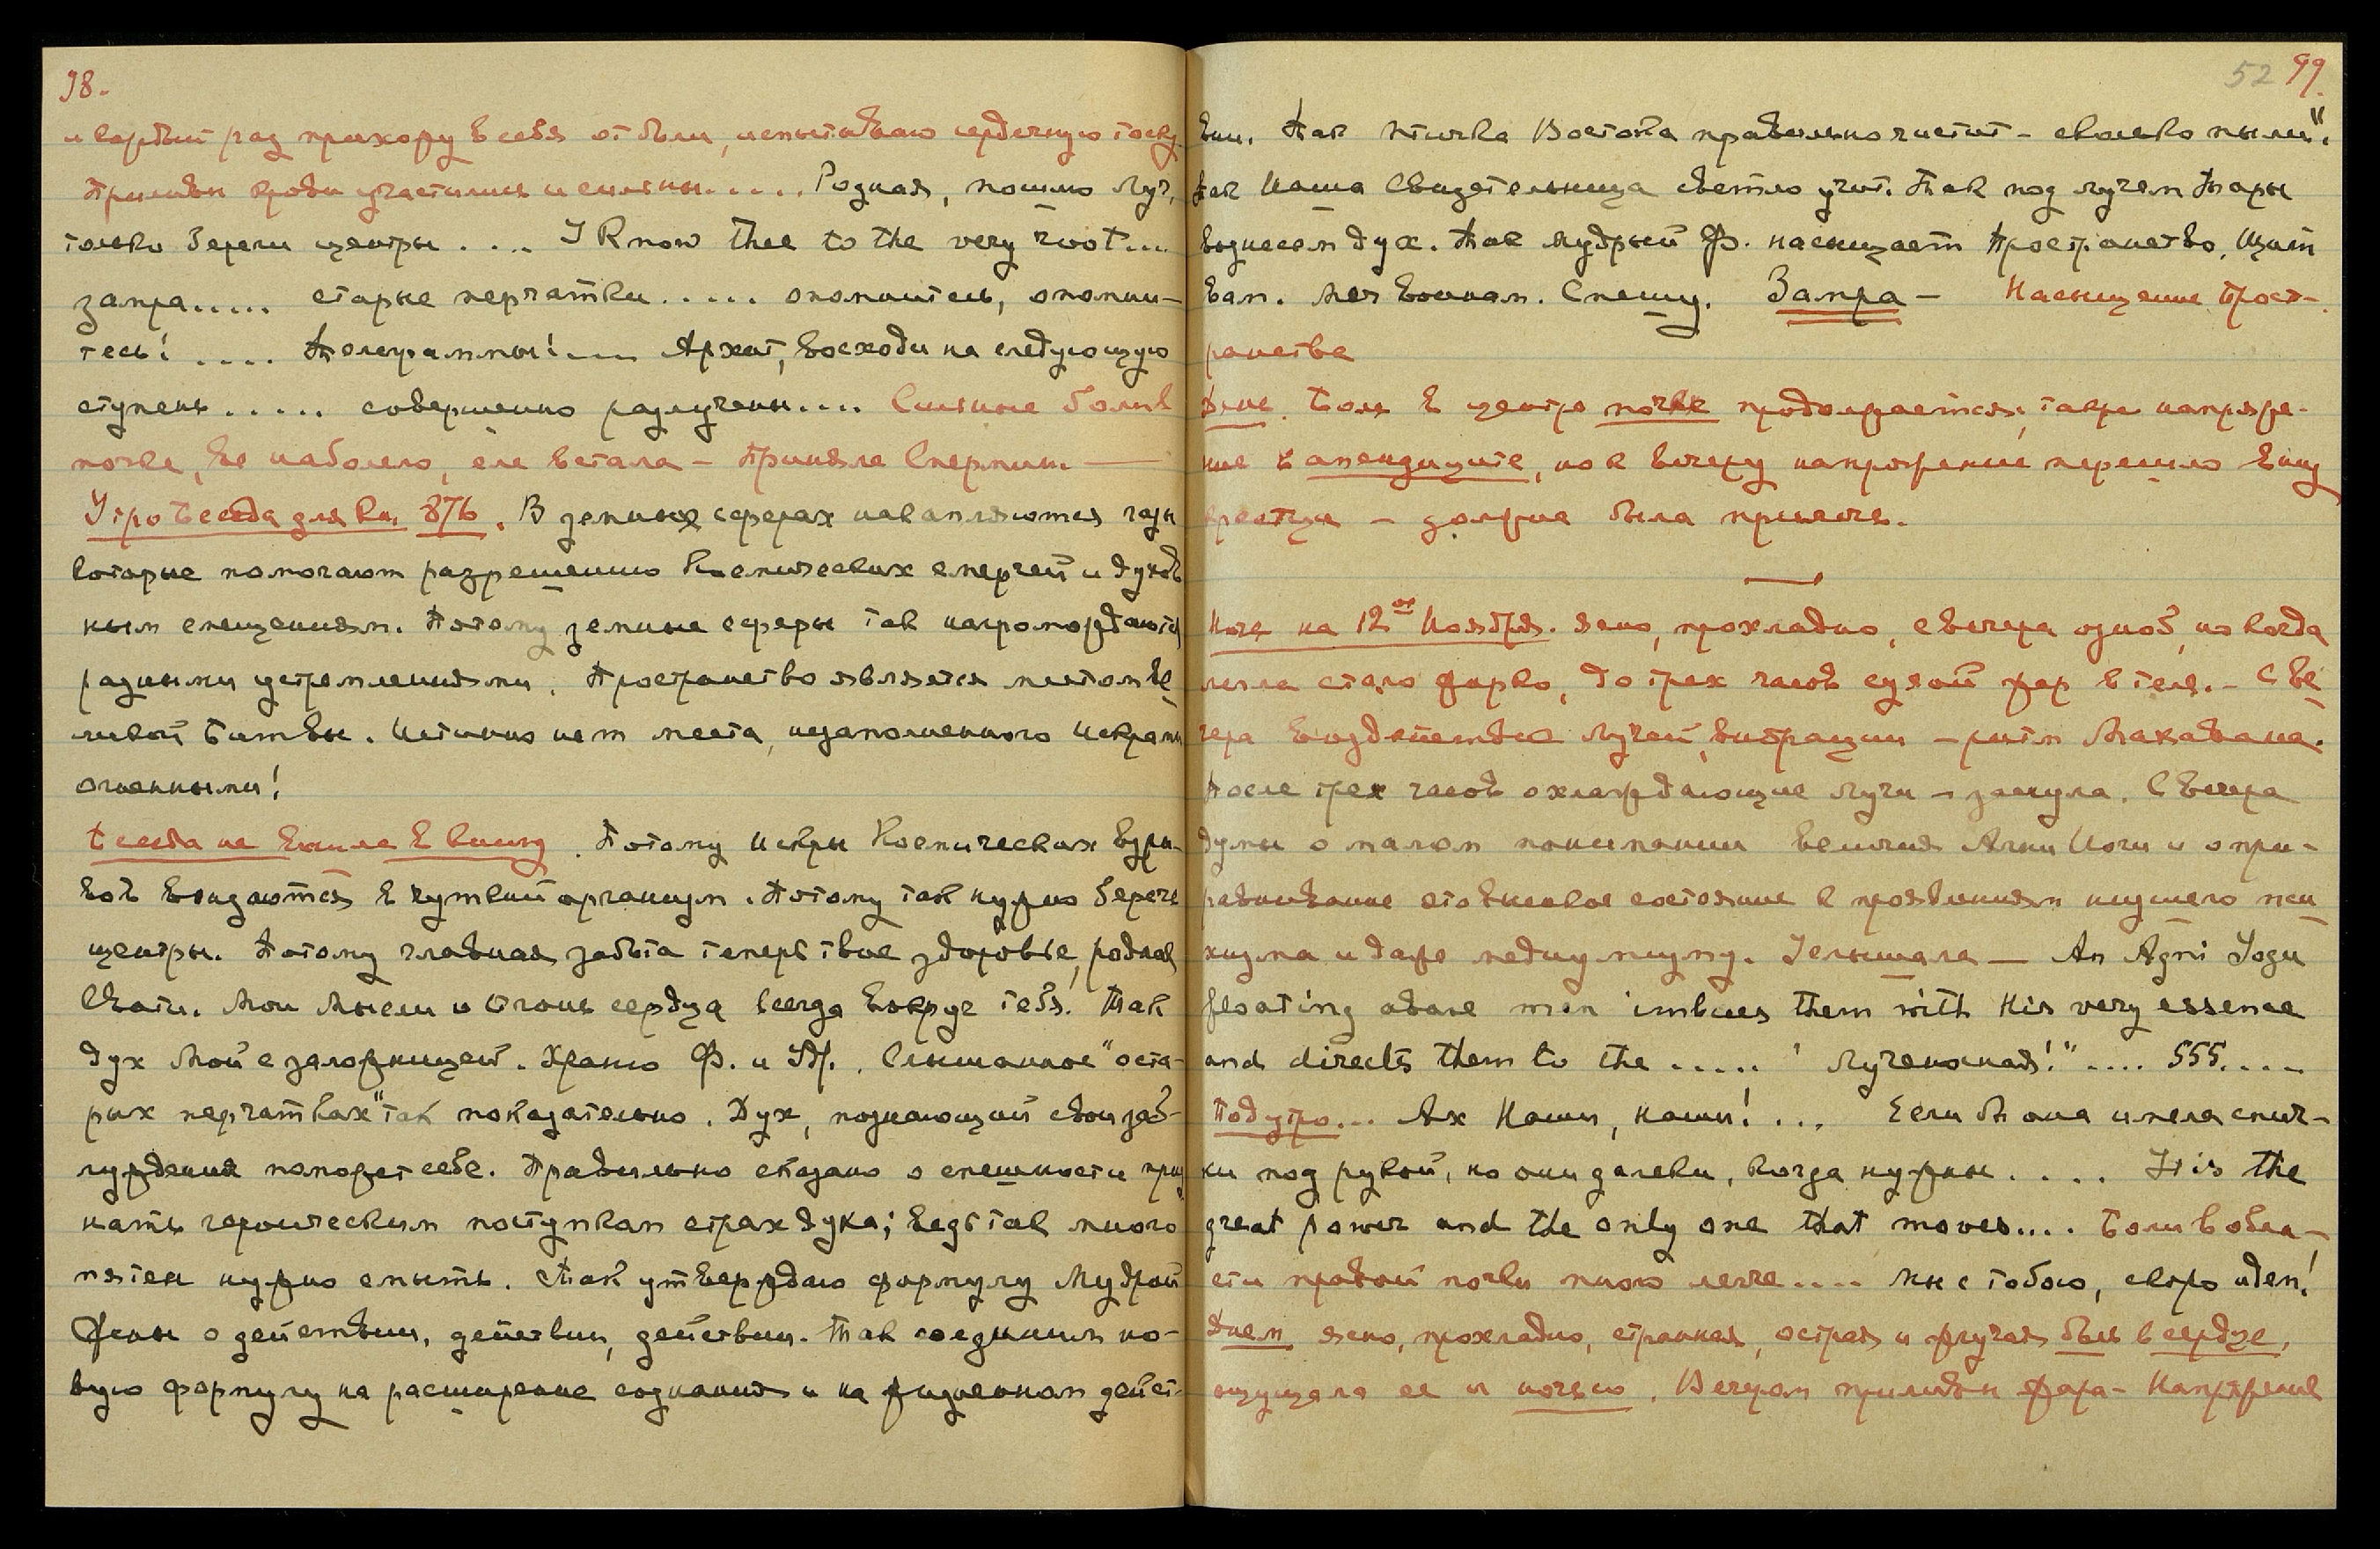 98.
и каждый раз прихожу в себя от боли, испытываю сердечную тоску
Приливы крови участились и сильны..... Родная, пошлю Луч,
только Береги центры.... I Know thee to the very root...
запра..... старые перчатки..... опомнитесь, опомни-
тесь! .... Телеграммы! .... Архат, восходи на следующую
ступень..... совершенно разлучены.... Сильные боли в
почке, всё наболело, еле встала – Приняла Спермин. —
Утро Беседа для кн. 876. В земных сферах накапляются газы
которые помогают разрешению Космических энергий и духов
ным смещениям. Потому земные сферы так нагромождаются
разными устремлениями. Пространство является местом Ве
ликой Битвы. Истинно нет места, незаполненного Искрами
огненными!
Беседа не вошла в книгу. Потому Искры Космических Взры-
вов вонзаются в чуткий организм. Потому так нужно беречь
центры. Потому главная забота теперь твое здоровье, родная
Свати. Мои Мысли и Огонь сердца всегда вокруг тебя. Так
Дух Мой с заложницей. Храню Ф. и Ур. Слышанное "о ста-
рых перчатках" так показательно. Дух, познающий свои заб-
луждения поможет себе. Правильно сказано о спешности при
нать героическим поступкам страх духа; ведь так много
пятен нужно смыть. Так утверждаю формулу Мудрой
Жены о действии, действии, действии. Так соединим но-
вую формулу на расширение сознания и на жизненном дейст-
52 99.
вии. Так Птичка Востока правильно чистит – сколько пыли".
Так Наша Свидетельница светло учит. Так под лучем Тары
вознесем дух. Так мудрый Ф. насыщает Пространство. Щит
Вам. Меч Воинам. Спешу. Запра – Насыщение Прост-
ранства
Днем. Боль в центре почке продолжается, также напряже-
ние в апендиците, но к вечеру напряжение перешло вниз
крестца – должна была прилечь.
Ночь на 12ое Ноября. Ясно, прохладно, с вечера озноб, но когда
легла стало жарко, до трех часов сухой жар в теле. – С Ве
чера воздействие Лучей, вибрации – ритм Макавана.
После трех часов охлаждающие Лучи – заснула. С вечера
думы о малом понимании величия Агни Йоги и о при-
равнивание этой высокое состояние к проявлениям низшего пси
хизма и даже медиумизму. Услышала — An Agni Yogi
floating above men imbues them with His very essence
and directs them to the ..... "Лученосная!" .... 555....
Под утро... Ах Наши, наши! ... Если бы она имела спич-
ки под рукой, но они далеки, когда нужны.... It is the
great power and the only one that moves.... Боли в обла-
сти правой почки много легче.... Мы с тобою, скоро идем!
Днем ясно, прохладно, странная, острая и жгучая боль в сердце,
ощущала ее и ночью. Вечером приливы жара – Напряжение